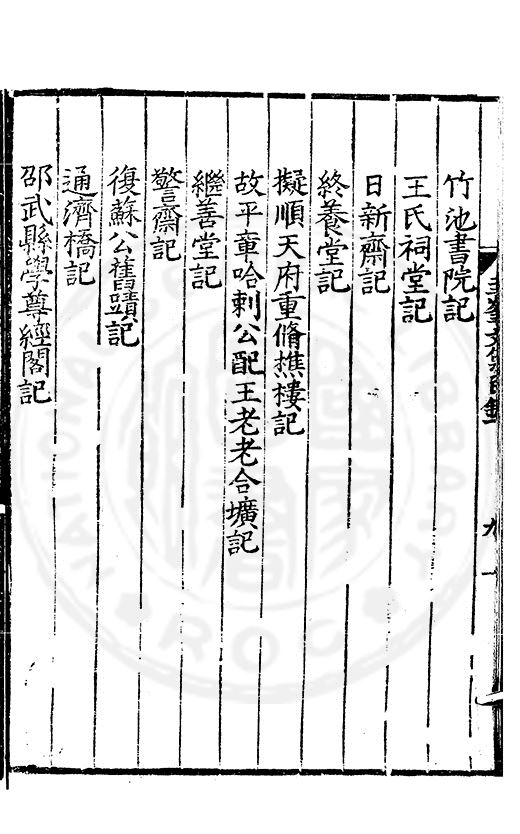 竹池書院記
王氏祠堂記
日新齋記
終養堂記
擬順天府重脩樵樓記
故平章哈剌公配王老老合壙記
繼善堂記
警齋記
復蘇公舊蹟記
通濟橋記
邵武縣學尊經閣記